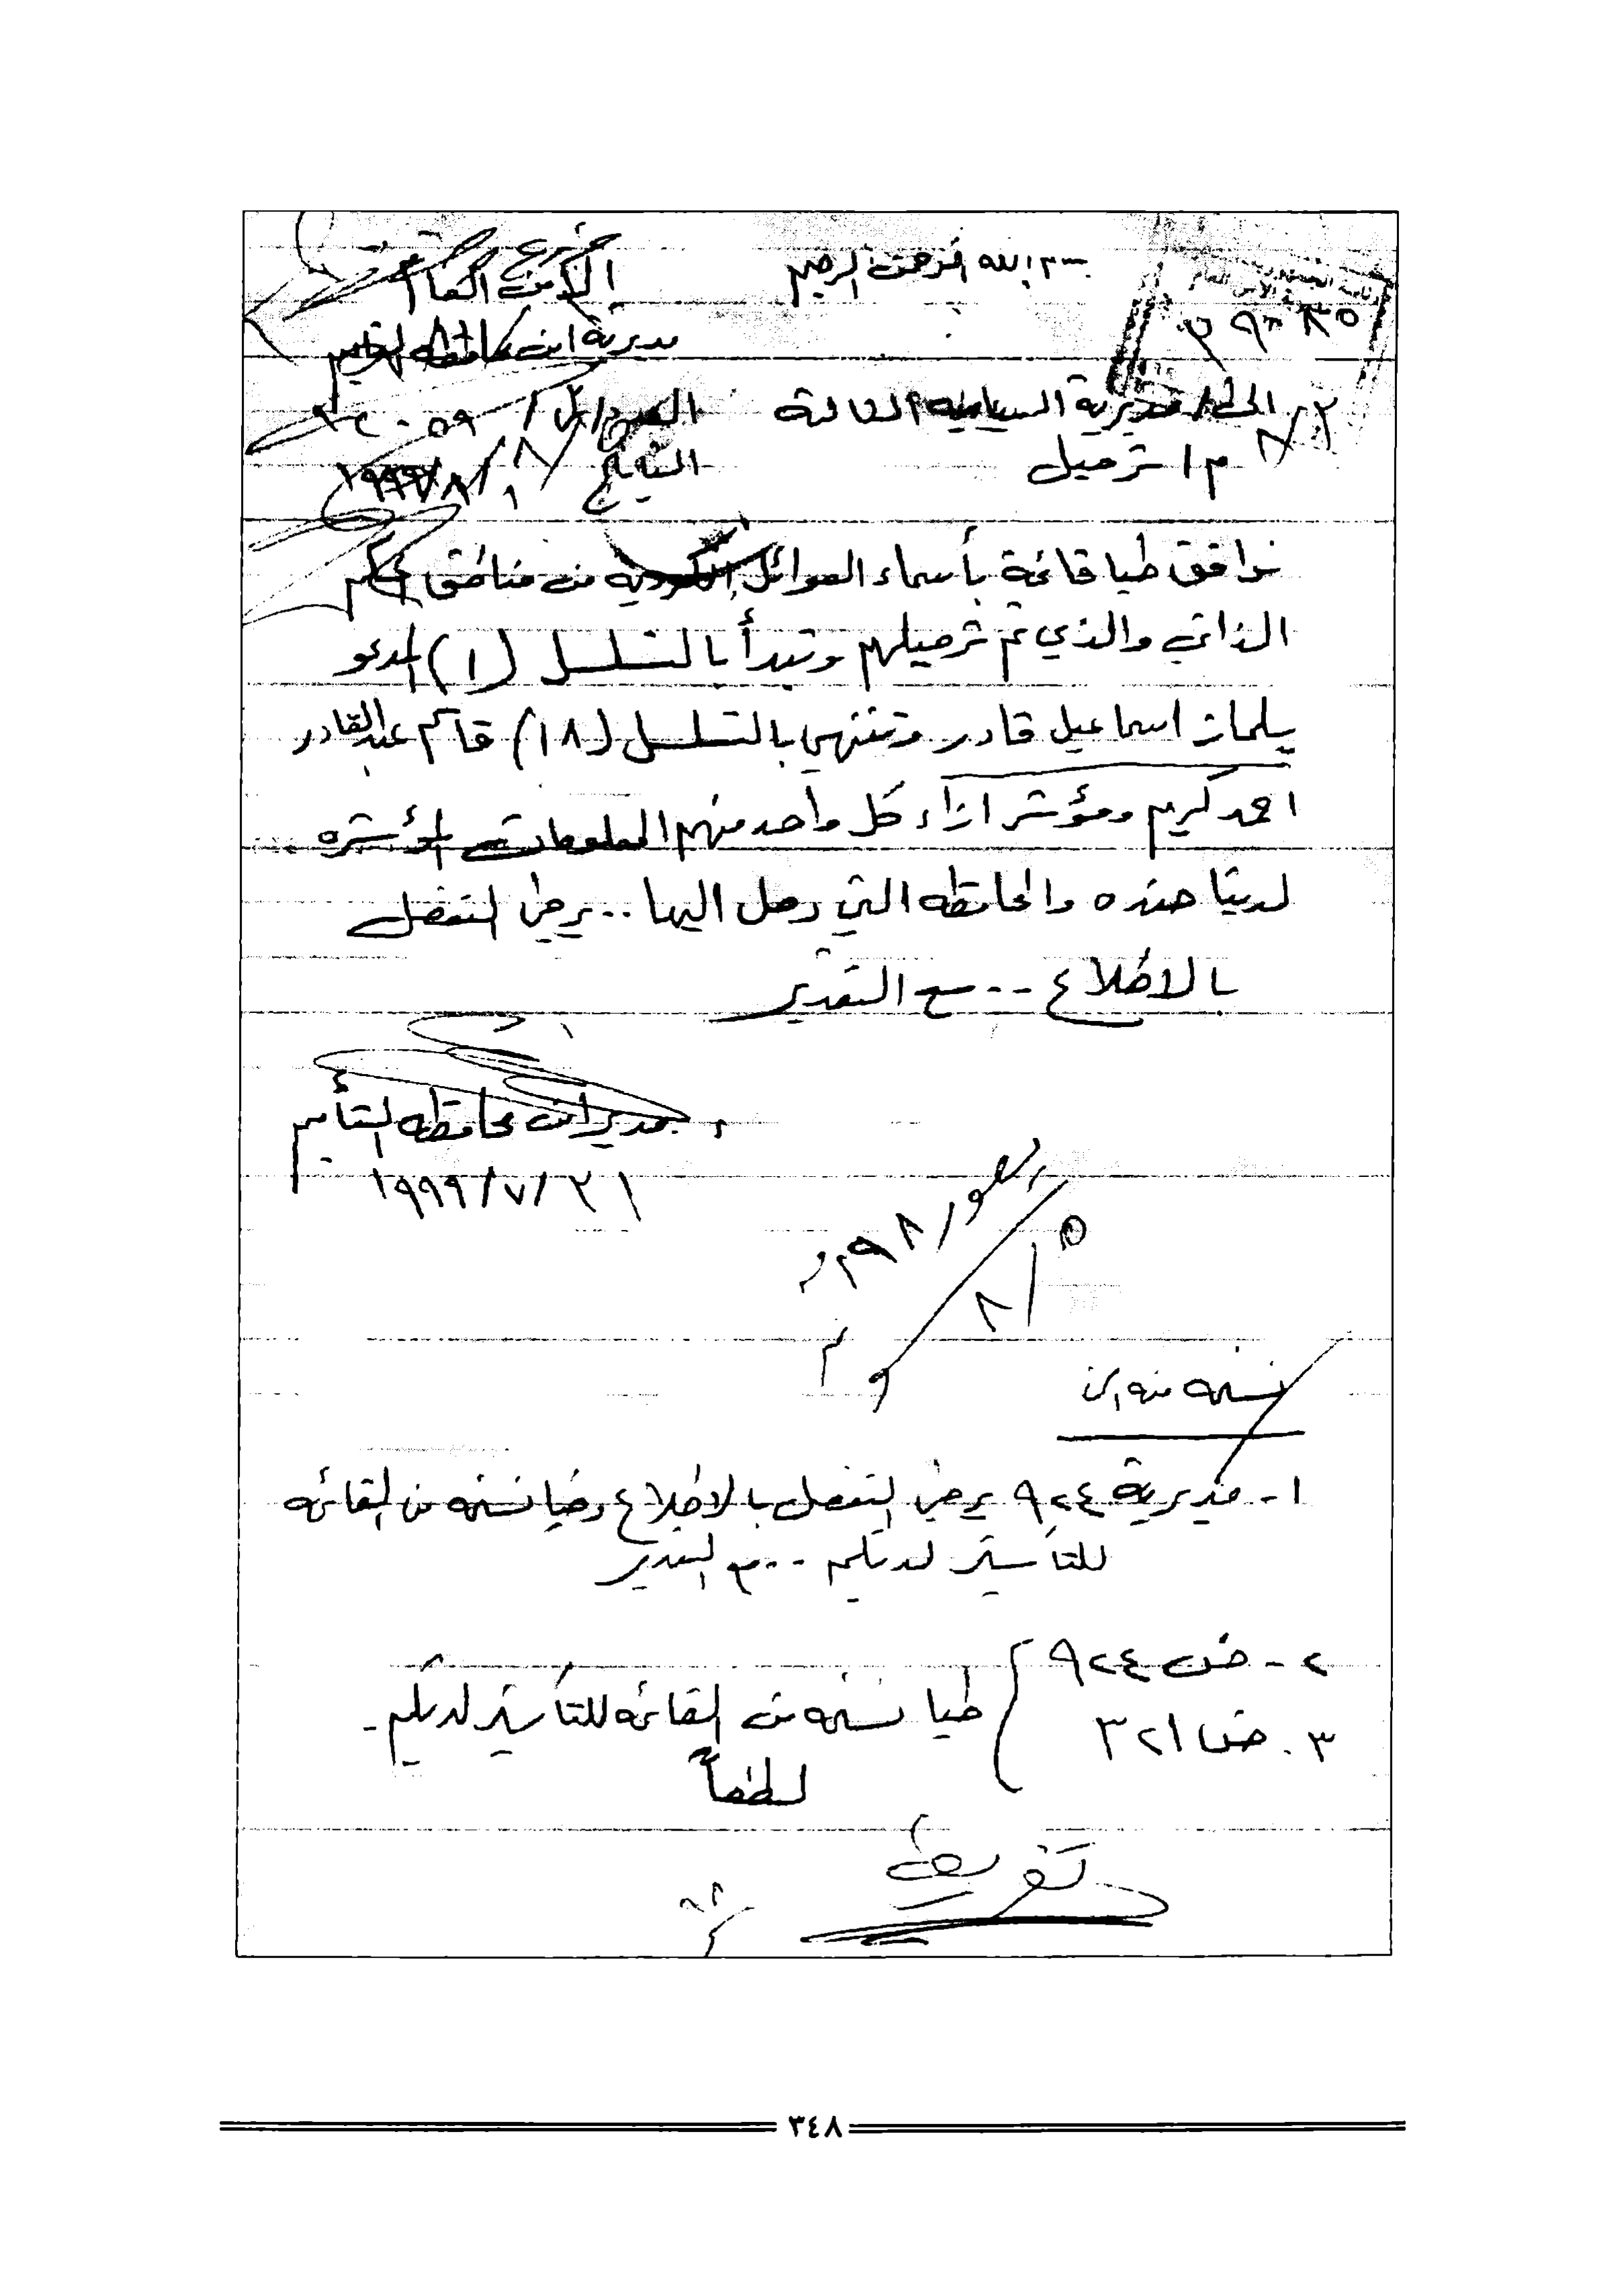 بسم الله الرحمن الرحيم
الأمن العام
مديرية امن محافظة التأميم
الى / مديرية السياسية الثالثة
م / ترحيل
التاريخ
نرافق طيا قائمة بأسماء العوائل الكردية من مناطق الحكم
الذاتي والذي تم ترحيلهم وتبدأ بالتسلسل (١) المدعو
يلماز اسماعيل قادر وتنتهي بالتسلسل (١٨) قاسم عبدالقادر
احمد كريم ومؤشر ازاء كل واحد منهم المعلومات المؤشره
لدينا ضده والمحافظه التي رحل اليها .. يرجى التفضل
بالاطلاع .. مع التقدير
مدير امن محافظه التأميم
١٩٩٩/٧/٣١
٨/٥
نسخه منه الى
١- مديرية ٩٢٤ يرجى التفضل بالاطلاع وطيا نسخه من القائمه
للتأشير لديكم .. مع التقدير
٢- ض ٩٢٤
٣- ض ٣٢١
طيا نسخه من القائمه للتأشير لديكم
لطفاً
٣٤٨